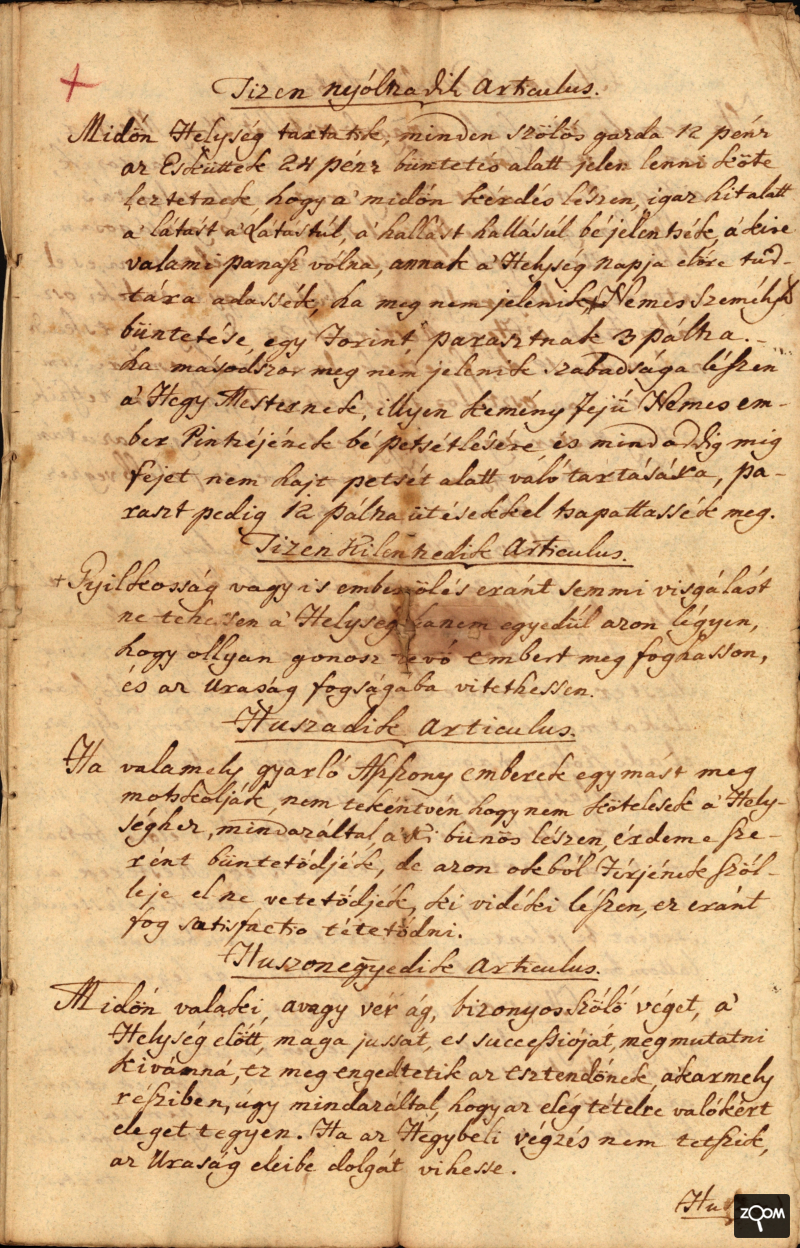 +
Tizen nyólczadik Articulus.
Midőn Helység tartatik, minden szőlős gazda 12 pénz
az Esküttek 24 pénz büntetés alatt jelen lenni köte
leztetnek hogy a' midőn kérdés lészen, igaz hit alatt
a' látást a' Látástúl, a' hallást hallásúl béjelentsék, a' kire
valami panasz vólna, annak a' Helység napja előre tud-
tára adassék, ha meg nem jelenik, Nemes Személy
büntetése egy forint parasztnak 3 pálcza. -
ha másodszor meg nem jelenik szabadsága lészen
a' Hegy Mesternek, illyen kemény fejű Nemes em-
ber Pinczéjének bé petsétlésére és mind addig míg
fejet nem hajt petsét alatt való tartására, pa-
raszt pedig 12 pálcza ütésekkel tsapattassék meg.
Tizen Kilentzedik Articulus.
+ Gyilkosság vagy is ember ölés eránt semmi visgálást
ne tehessen a' Helység hanem egyedűl azon légyen,
hogy ollyan gonosz tevő embert meg foghasson,
és az Uraság fogságába vitethessen.
Huszadik Articulus.
Ha valamely gyarló Aszszony emberek egymást meg
motskolják, nem tekéntvén hogy nem kötelesek a' Hely-
séghez, mindazáltal a' ki bűnös lészen, érdeme sze-
rént büntetődjék, de azon okból Férjének szől-
leje el ne vetetődjék, ki vidéki lészen, ez eránt
fog satisfactio tétetődni.
Huszonegyedik Articulus.
Midőn valaki, avagy vér ág, bizonyos szőlő véget, a'
Helység előtt, maga jussát, es successióját, megmutatni
kivánná, ez meg engedtetik az esztendőnek, akarmely
résziben, úgy mindazáltal, hogy az elég tételre valókért
eleget tegyen. Ha az Hegybéli végzés nem tetszik,
az Uraság eleibe dolgát vihesse.
Hus
ZOOM